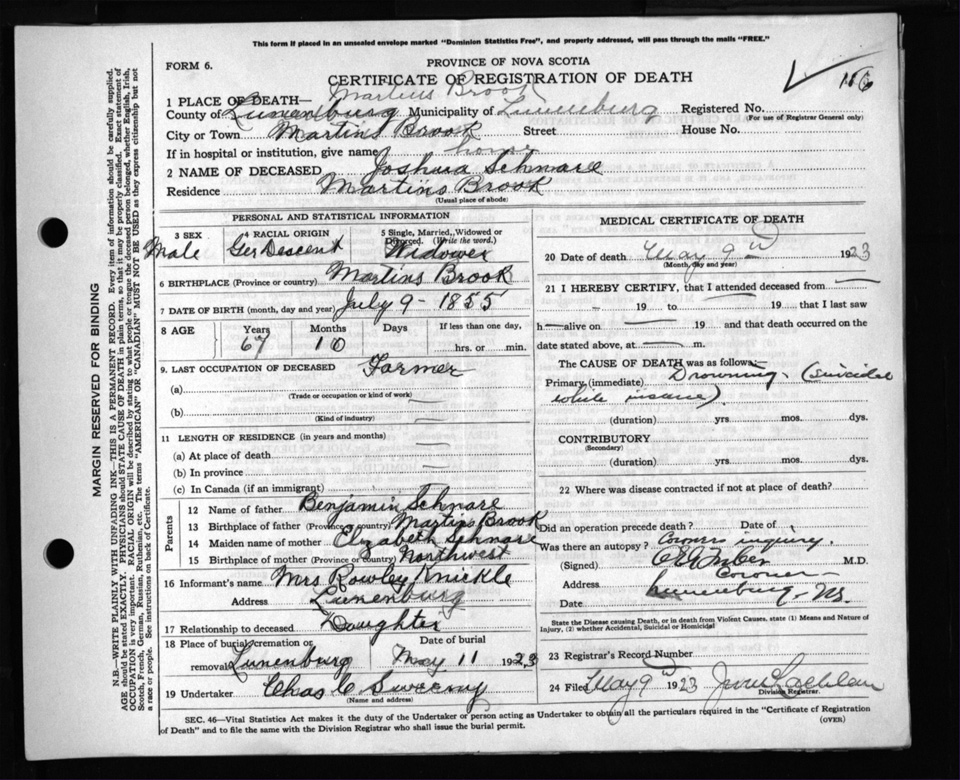 This form if placed in an unsealed envelope marked "Dominion Statistics Free", and properly addressed, will pass through the mails "FREE."
FORM 6.
PROVINCE OF NOVA SCOTIA
CERTIFICATE OF REGISTRATION OF DEATH
116
1 PLACE OF DEATH— Martins Brook
County of Lunenburg Municipality of Lunenburg Registered No.
(For use of Registrar General only)
City or Town Martins Brook Street House No.
If in hospital or institution, give name home
2 NAME OF DECEASED Joshua Schnare
Residence Martins Brook
(Usual place of abode)
PERSONAL AND STATISTICAL INFORMATION
3 SEX 4 RACIAL ORIGIN 5 Single, Married, Widowed or Divorced. (Write the word.)
Male Ger Descent Widower
6 BIRTHPLACE (Province or country) Martins Brook
7 DATE OF BIRTH (month, day and year) July 9 - 1855
8 AGE Years Months Days If less than one day,
67 10 hrs. or min.
9. LAST OCCUPATION OF DECEASED Farmer
(a)
(Trade or occupation or kind of work)
(b)
(Kind of industry)
11 LENGTH OF RESIDENCE (in years and months)
(a) At place of death
(b) In province
(c) In Canada (if an immigrant)
Parents
12 Name of father Benjamin Schnare
13 Birthplace of father (Province or country) Martins Brook
14 Maiden name of mother Elizabeth Schnare
15 Birthplace of mother (Province or Country) Northwest
16 Informant's name Mrs Rowley Knickle
Address Lunenburg
17 Relationship to deceased Daughter
18 Place of burial, cremation or removal Lunenburg Date of burial May 11 1923
19 Undertaker Chas C Sweeny
(Name and address)
MEDICAL CERTIFICATE OF DEATH
20 Date of death May 9 1923
(Month, day and year)
21 I HEREBY CERTIFY, that I attended deceased from
19 to 19 that I last saw
h alive on 19 and that death occurred on the
date stated above, at m.
The CAUSE OF DEATH was as follows:
Primary (immediate) Drowning. (suicidal
while insane).
(duration) yrs. mos. dys.
CONTRIBUTORY
(Secondary)
(duration) yrs. mos. dys.
22 Where was disease contracted if not at place of death?
Did an operation precede death? Date of
Was there an autopsy? Coroners inquiry.
(Signed) M.D.
Coroner
Address Lunenburg - NS.
Date
State the Disease causing Death, or in death from Violent Causes, state (1) Means and Nature of Injury, (2) whether Accidental, Suicidal or Homicidal
23 Registrar's Record Number
24 Filed May 9 1923
Division Registrar.
SEC. 46—Vital Statistics Act makes it the duty of the Undertaker or person acting as Undertaker to obtain all the particulars required in the "Certificate of Registration of Death" and to file the same with the Division Registrar who shall issue the burial permit.
(OVER)
MARGIN RESERVED FOR BINDING
N.B.—WRITE PLAINLY WITH UNFADING INK—THIS IS A PERMANENT RECORD. Every item of information should be carefully supplied.
AGE should be stated EXACTLY. PHYSICIANS should STATE CAUSE OF DEATH in plain terms, so that it may be properly classified. Exact statement of
OCCUPATION is very important. RACIAL ORIGIN will be described by stating to what people or tongue the deceased person belonged, whether English, Irish,
Scotch, French, German, Russian, Ruthenian, etc. The terms "AMERICAN" OR "CANADIAN" MUST NOT BE USED as they express citizenship but not
a race or people. See instructions on back of Certificate.